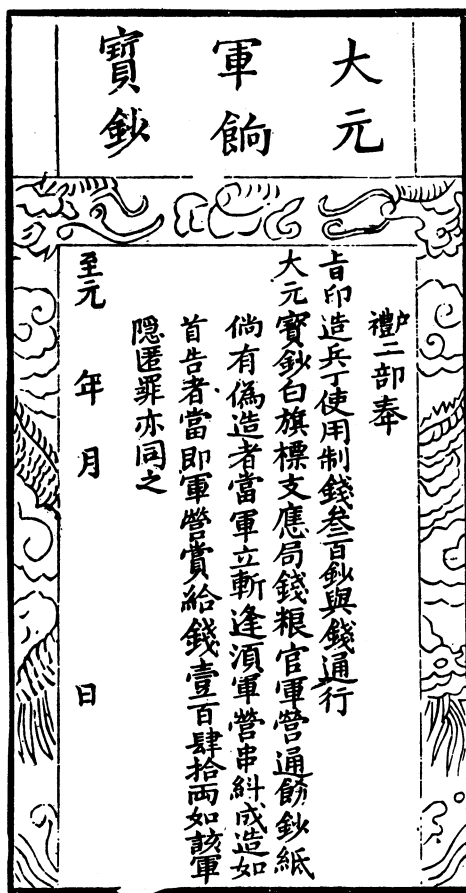 大元
軍餉
寶鈔
戶禮二部奉
旨印造兵丁使用制錢叁百鈔與錢通行
大元寶鈔白旗標支應局錢粮官軍營通飭鈔紙
倘有偽造者當軍立斬逢湏軍營串糾成造如
首告者當即軍營賞給錢壹百肆拾両如該軍
隠匿罪亦同之
至元 年 月 日